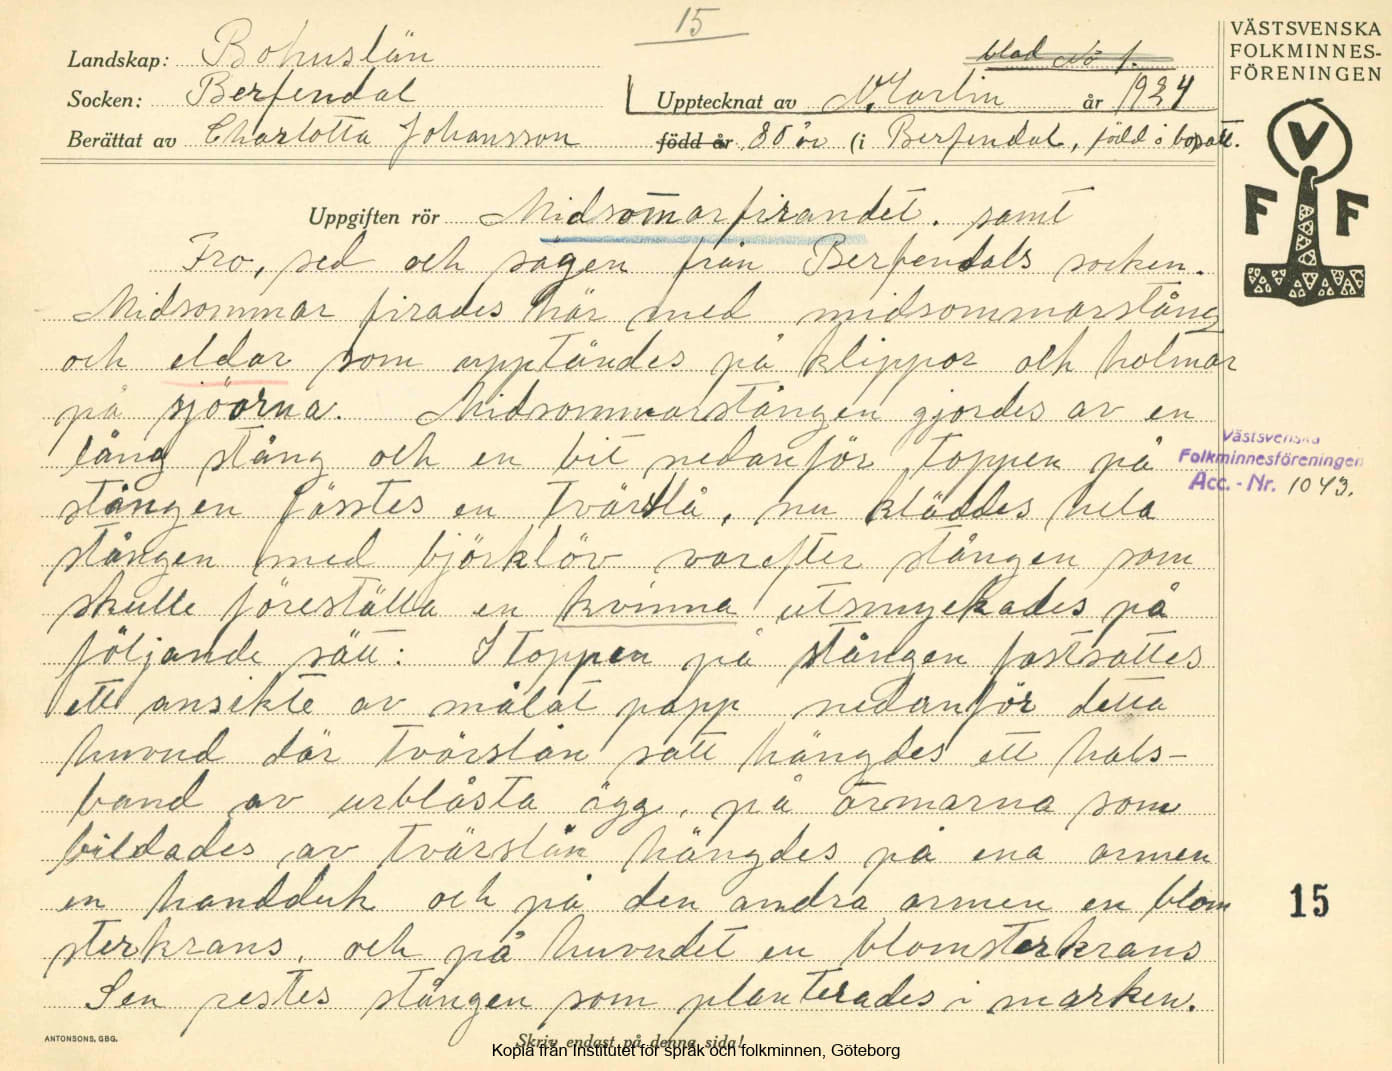 15
Landskap: Bohuslän
blad No 1.
VÄSTSVENSKA
FOLKMINNES-
FÖRENINGEN
Socken: Berfendal
Upptecknat av N. Karlin år 1924
Berättat av Charlotta Johansson
född år 80 år (i Berfendal, född o bosatt.
V
F F
Uppgiften rör Midsomarfirandet. samt
Tro, sed och sägen från Berfendals socken.
Midsommar firades här med midsommarstång
och eldar som upptändes på klippor och holmar
på sjöarna. Midsommarstången gjordes av en
lång stång och en bit nedanför toppen på
stången fästes en tvärslå, nu kläddes hela
stången med björklöv varefter stången som
skulle föreställa en kvinna utsmyckades på
följande sätt: I toppen på stången fastsattes
ett ansikte av målat papp nedanför detta
huvud där tvärslån satt hängdes ett hals-
band av urblåsta ägg, på armarna som
bildades av tvärslån hängdes på ena armen
en handduk och på den andra armen en blom
sterkrans, och på huvudet en blomsterkrans
Sen restes stången som planterades i marken.
Västsvenska
Folkminnesföreningen
Acc. - Nr. 1043.
15
ANTONSONS, GBG.
Skriv endast på denna sida!
Kopia från Institutet för språk och folkminnen, Göteborg